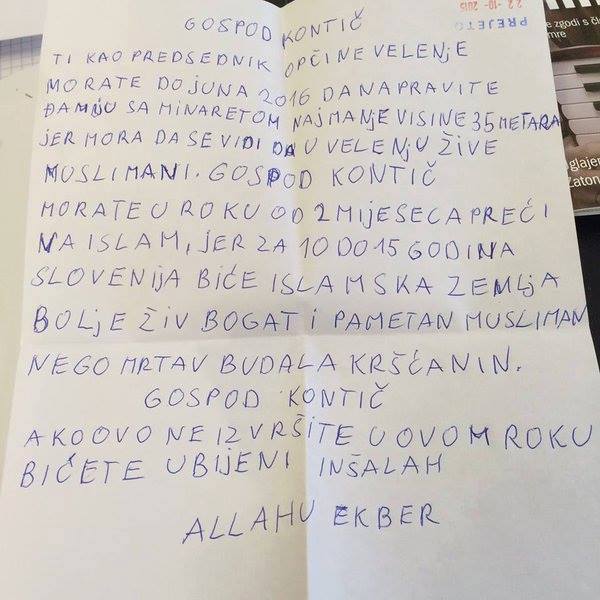 GOSPOD KONTIČ
TI KAO PREDSEDNIK OPČINE VELENJE
MORATE DO JUNA 2016 DA NAPRAVITE
ĐAMIJU SA MINARETOM NAJMANJE VISINE 35 METARA
JER MORA DA SE VIDI DA U VELENJU ŽIVE
MUSLIMANI. GOSPOD KONTIČ
MORATE U ROKU OD 2 MIJESECA PREĆI
NA ISLAM, JER ZA 10 DO 15 GODINA
SLOVENIJA BIĆE ISLAMSKA ZEMLJA
BOLJE ŽIV BOGAT I PAMETAN MUSLIMAN
NEGO MRTAV BUDALA KRŠĆANIN.
GOSPOD KONTIČ
AKO OVO NE IZVRŠITE U OVOM ROKU
BIĆETE UBIJENI INŠALAH
ALLAHU EKBER
PREJETO
22-10-2015
e zgodi s čl
mre
glajen
Zaton